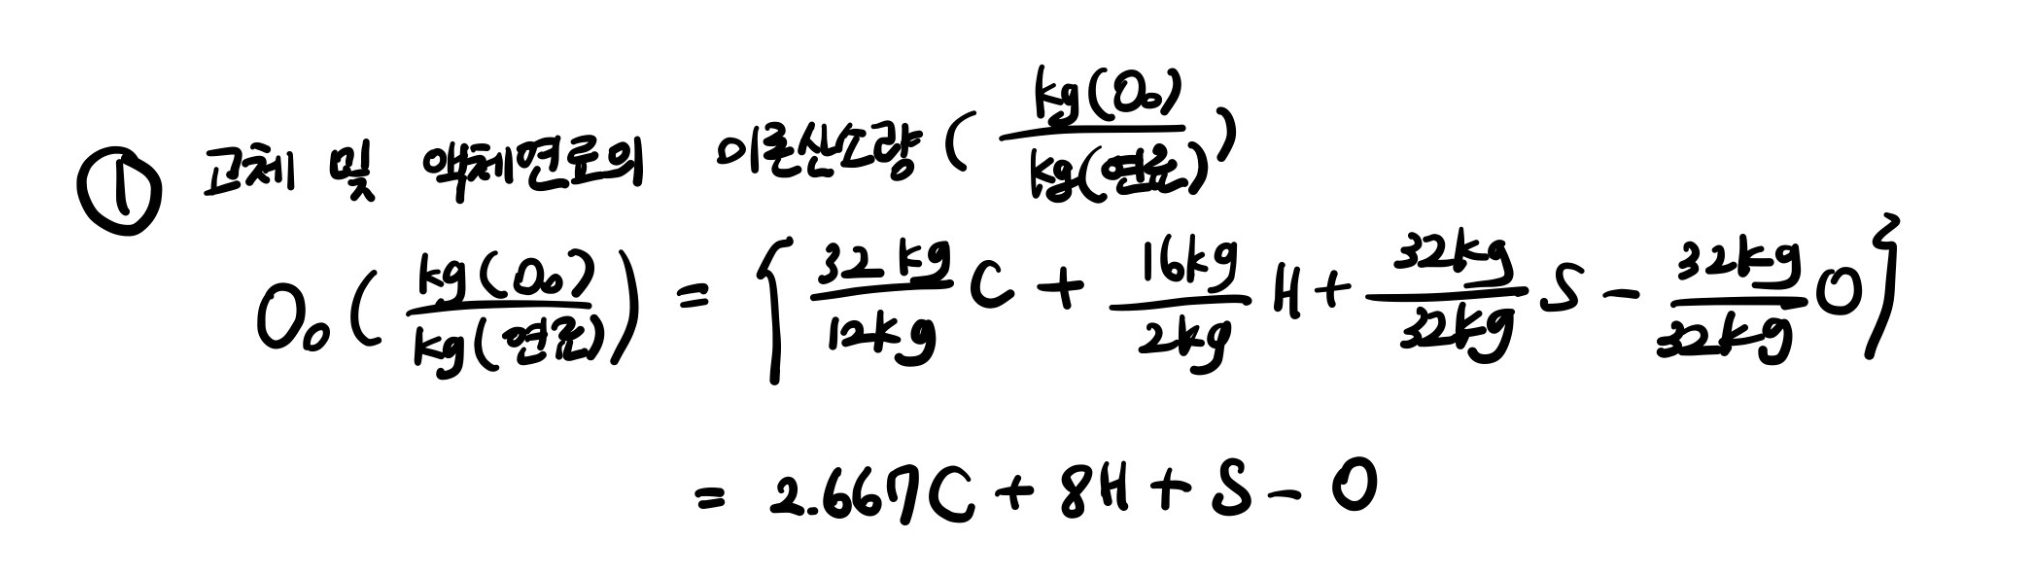 ① 고체 및 액체연료의 이론산소량 ( kg(O₀) / kg(연료) )
O₀ ( kg(O₀) / kg(연료) ) = { 32kg/12kg C + 16kg/2kg H + 32kg/32kg S - 32kg/32kg O }
= 2.667C + 8H + S - O